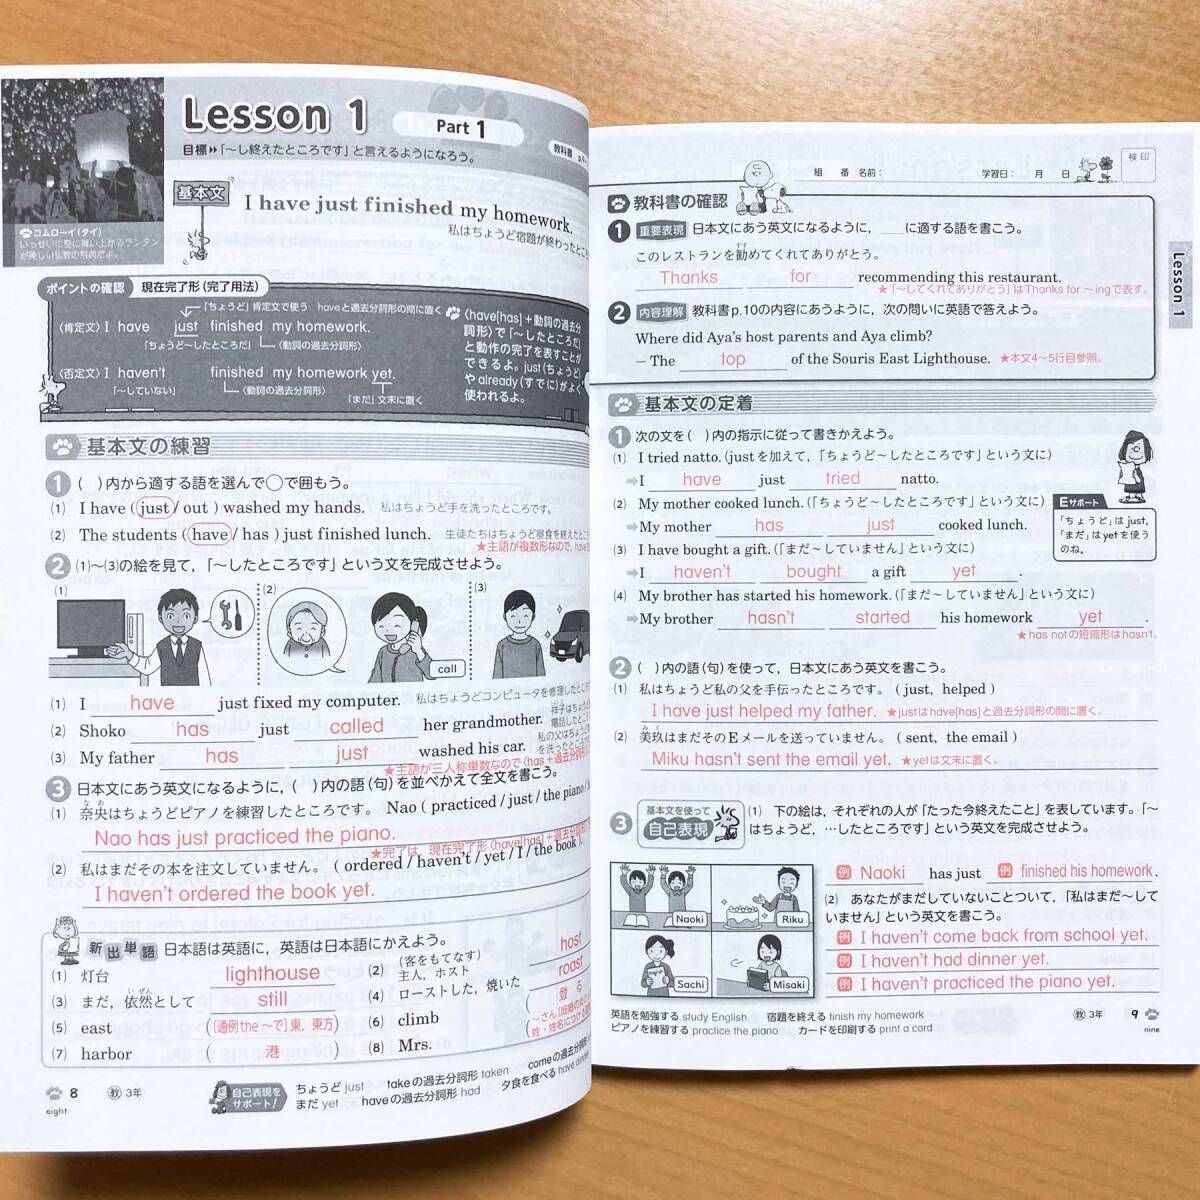 Lesson 1
Part 1
教科書
目標▶▶「〜し終えたところです」と言えるようになろう。
コムローイ(タイ)
いっせいに空に舞い上がるランタンが美しい仏教の祭典だよ。
基本文
I have just finished my homework.
私はちょうど宿題が終わったところ
ポイントの確認 現在完了形(完了用法)
「ちょうど」肯定文で使う haveと過去分詞形の間に置く
〈肯定文〉I have just finished my homework.
「ちょうど〜したところだ」 〈動詞の過去分詞形〉
〈否定文〉I haven't finished my homework yet.
「〜していない」 〈動詞の過去分詞形〉 「まだ」文末に置く
〈have[has]+動詞の過去分詞形〉で「〜したところだ」と動作の完了を表すことができるよ。just(ちょうど)やalready(すでに)がよく使われるよ。
基本文の練習
1 ( )内から適する語を選んで○で囲もう。
(1) I have ( just / out ) washed my hands. 私はちょうど手を洗ったところです。
(2) The students ( have / has ) just finished lunch. 生徒たちはちょうど昼食を終えた
★主語が複数形なので, have
2 (1)〜(3)の絵を見て,「〜したところです」という文を完成させよう。
(1)
(2)
(3)
call
(1) I have just fixed my computer. 私はちょうどコンピュータを修理したところ
(2) Shoko has just called her grandmother. 祥子はちょうど 電話したところ
(3) My father has just washed his car. 私の父はちょうど を洗ったところ
★主語が三人称単数なので〈has+過去分詞
3 日本文にあう英文になるように,( )内の語(句)を並べかえて全文を書こう。
(1) 奈央はちょうどピアノを練習したところです。 Nao ( practiced / just / the piano /
なお
Nao has just practiced the piano.
★完了は, 現在完了形〈have[has]+過去分詞
(2) 私はまだその本を注文していません。 ( ordered / haven't / yet / I / the book ).
I haven't ordered the book yet.
新出単語 日本語は英語に, 英語は日本語にかえよう。
(1) 灯台 lighthouse
(2) (客をもてなす) 主人, ホスト host
(3) まだ, 依然として still
いぜん
(4) ローストした, 焼いた roast
(5) east ([通例the 〜で]東, 東方)
(6) climb 登る
(7) harbor ( 港 )
(8) Mrs.
8
eight
教 3年
自己表現をサポート!
ちょうど just takeの過去分詞形 taken comeの過去分詞形
まだ yet haveの過去分詞形 had 夕食を食べる have dinner
組 番 名前: 学習日: 月 日
検印
Lesson 1
教科書の確認
1 重要表現 日本文にあう英文になるように, ___に適する語を書こう。
このレストランを勧めてくれてありがとう。
すす
Thanks for recommending this restaurant.
★「〜してくれてありがとう」はThanks for 〜ingで表す。
2 内容理解 教科書p.10の内容にあうように, 次の問いに英語で答えよう。
Where did Aya's host parents and Aya climb?
– The top of the Souris East Lighthouse. ★本文4〜5行目参照。
基本文の定着
1 次の文を( )内の指示に従って書きかえよう。
(1) I tried natto. (justを加えて,「ちょうど〜したところです」という文に)
➡I have just tried natto.
(2) My mother cooked lunch. (「ちょうど〜したところです」という文に)
➡My mother has just cooked lunch.
(3) I have bought a gift. (「まだ〜していません」という文に)
➡I haven't bought a gift yet .
(4) My brother has started his homework. (「まだ〜していません」という文に)
➡My brother hasn't started his homework yet .
★has notの短縮形はhasn't.
Eサポート
「ちょうど」はjust, 「まだ」はyetを使うのね。
2 ( )内の語(句)を使って, 日本文にあう英文を書こう。
(1) 私はちょうど私の父を手伝ったところです。 ( just, helped )
I have just helped my father. ★justはhave[has]と過去分詞形の間に置く。
(2) 美玖はまだそのEメールを送っていません。 ( sent, the email )
みく
Miku hasn't sent the email yet. ★yetは文末に置く。
3 基本文を使って 自己表現
(1) 下の絵は, それぞれの人が「たった今終えたこと」を表しています。「〜はちょうど, …したところです」という英文を完成させよう。
Naoki
Riku
Sachi
Misaki
例 Naoki has just 例 finished his homework.
(2) あなたがまだしていないことついて,「私はまだ〜していません」という英文を書こう。
例 I haven't come back from school yet.
例 I haven't had dinner yet.
例 I haven't practiced the piano yet.
英語を勉強する study English 宿題を終える finish my homework
ピアノを練習する practice the piano カードを印刷する print a card
教 3年
9
nine